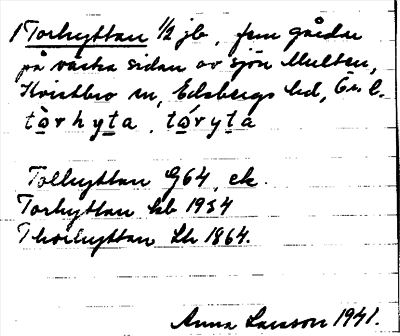 1 Torhyttan 1/2 jb, fem gårdar
på västra sidan av sjön Multen,
Kvistbro sn, Edsbergs hd, Ör. l.
tòrhyta, tóryta
Tolhyttan G64, ek.
Torhyttan kb 1934
Thorhyttan Lh 1864.
Anna Larsson 1941.